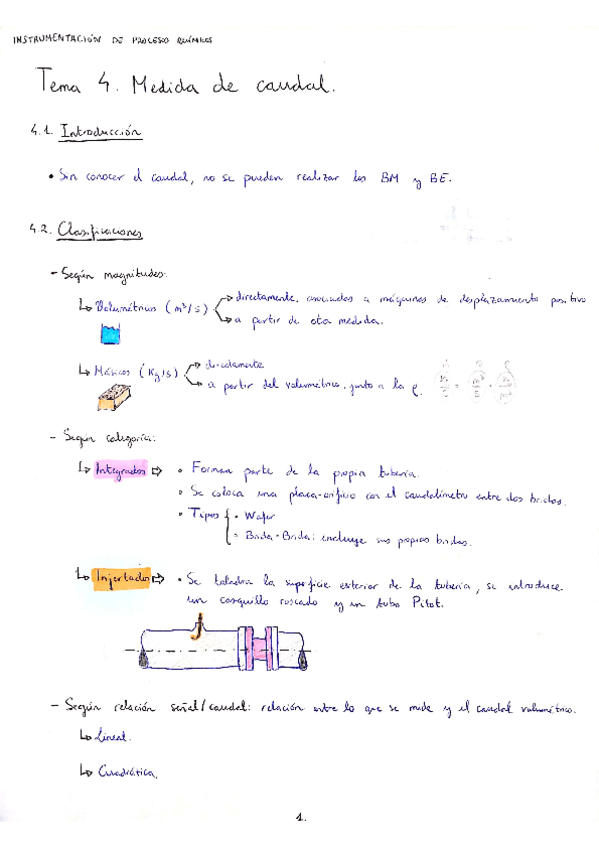 INSTRUMENTACIÓN DE PROCESOS QUÍMICOS
Tema 4. Medida de caudal.
4.1. Introducción
• Sin conocer el caudal, no se pueden realizar los BM y BE.
4.2. Clasificaciones
- Según magnitudes:
↳ Volumétricos (m³/s) → directamente, asociados a máquinas de desplazamiento positivo
→ a partir de otra medida.
↳ Másicos (Kg/s) → directamente
→ a partir del volumétrico, junto a la ρ.
- Según categoría:
↳ Integrados ⇨ • Forman parte de la propia tubería.
• Se coloca una placa-orificio con el caudalímetro entre dos bridas.
• Tipos { • Wafer
• Brida-Brida: incluye sus propias bridas.
↳ Injertados ⇨ • Se taladra la superficie exterior de la tubería, se introduce
un casquillo roscado y un tubo Pitot.
- Según relación señal/caudal: relación entre lo que se mide y el caudal volumétrico.
↳ Lineal.
↳ Cuadrática.
1.